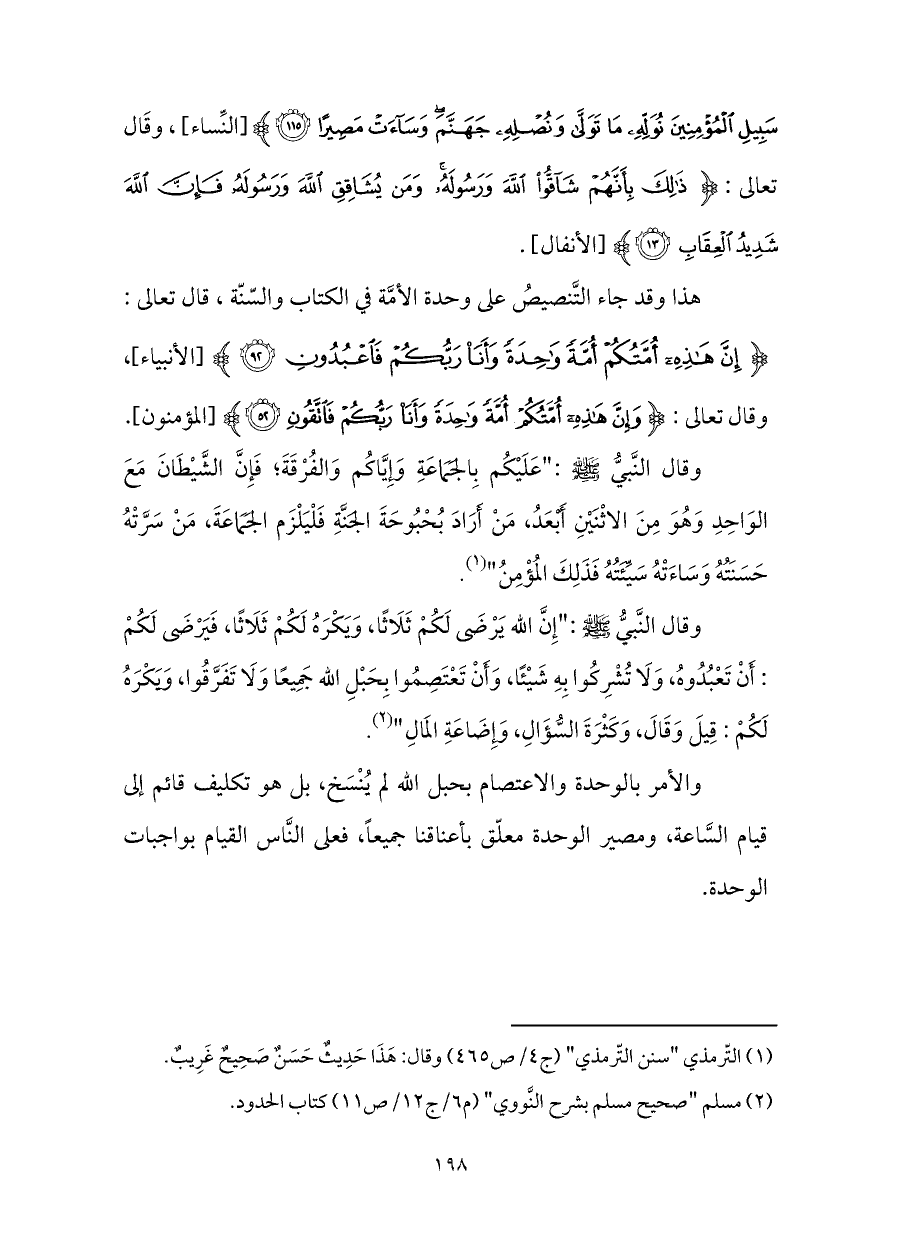 سَبِيلِ ٱلْمُؤْمِنِينَ نُوَلِّهِۦ مَا تَوَلَّىٰ وَنُصْلِهِۦ جَهَنَّمَۖ وَسَآءَتْ مَصِيرًا ۝١١٥ ﴾ [النِّساء] ، وقَال
تعالى : ﴿ ذَٰلِكَ بِأَنَّهُمْ شَآقُّوا۟ ٱللَّهَ وَرَسُولَهُۥۚ وَمَن يُشَاقِقِ ٱللَّهَ وَرَسُولَهُۥ فَإِنَّ ٱللَّهَ
شَدِيدُ ٱلْعِقَابِ ۝١٣ ﴾ [الأنفال] .
هذا وقد جاء التَّنصيصُ على وحدة الأمَّة في الكتاب والسّنّة ، قال تعالى :
﴿ إِنَّ هَٰذِهِۦٓ أُمَّتُكُمْ أُمَّةً وَٰحِدَةً وَأَنَا۠ رَبُّكُمْ فَٱعْبُدُونِ ۝٩٢ ﴾ [الأنبياء]،
وقال تعالى : ﴿ وَإِنَّ هَٰذِهِۦٓ أُمَّتُكُمْ أُمَّةً وَٰحِدَةً وَأَنَا۠ رَبُّكُمْ فَٱتَّقُونِ ۝٥٢ ﴾ [المؤمنون].
وقال النَّبيُّ ﷺ :"عَلَيْكُم بِالجَمَاعَةِ وَإِيَّاكُم وَالفُرْقَةَ؛ فَإِنَّ الشَّيْطَانَ مَعَ
الوَاحِدِ وَهُوَ مِنَ الاثْنَيْنِ أَبْعَدُ، مَنْ أَرَادَ بُحْبُوحَةَ الجَنَّةِ فَلْيَلْزَم الجَمَاعَةَ، مَنْ سَرَّتْهُ
حَسَنَتُهُ وَسَاءَتْهُ سَيِّئَتُهُ فَذَلِكَ المُؤْمِنُ"(١).
وقال النَّبيُّ ﷺ :"إِنَّ الله يَرْضَى لَكُمْ ثَلَاثًا، وَيَكْرَهُ لَكُمْ ثَلَاثًا، فَيَرْضَى لَكُمْ
: أَنْ تَعْبُدُوهُ، وَلَا تُشْرِكُوا بِهِ شَيْئًا، وَأَنْ تَعْتَصِمُوا بِحَبْلِ الله جَمِيعًا وَلَا تَفَرَّقُوا، وَيَكْرَهُ
لَكُمْ : قِيلَ وَقَالَ، وَكَثْرَةَ السُّؤَالِ، وَإِضَاعَةِ المَالِ"(٢).
والأمر بالوحدة والاعتصام بحبل الله لم يُنْسَخ، بل هو تكليف قائم إلى
قيام السَّاعة، ومصير الوحدة معلّق بأعناقنا جميعاً، فعلى النَّاس القيام بواجبات
الوحدة.
(١) التّرمذي "سنن التّرمذي" (ج٤/ ص٤٦٥) وقال: هَذَا حَدِيثٌ حَسَنٌ صَحِيحٌ غَرِيبٌ.
(٢) مسلم "صحيح مسلم بشرح النَّووي" (م٦/ ج١٢/ ص١١) كتاب الحدود.
١٩٨